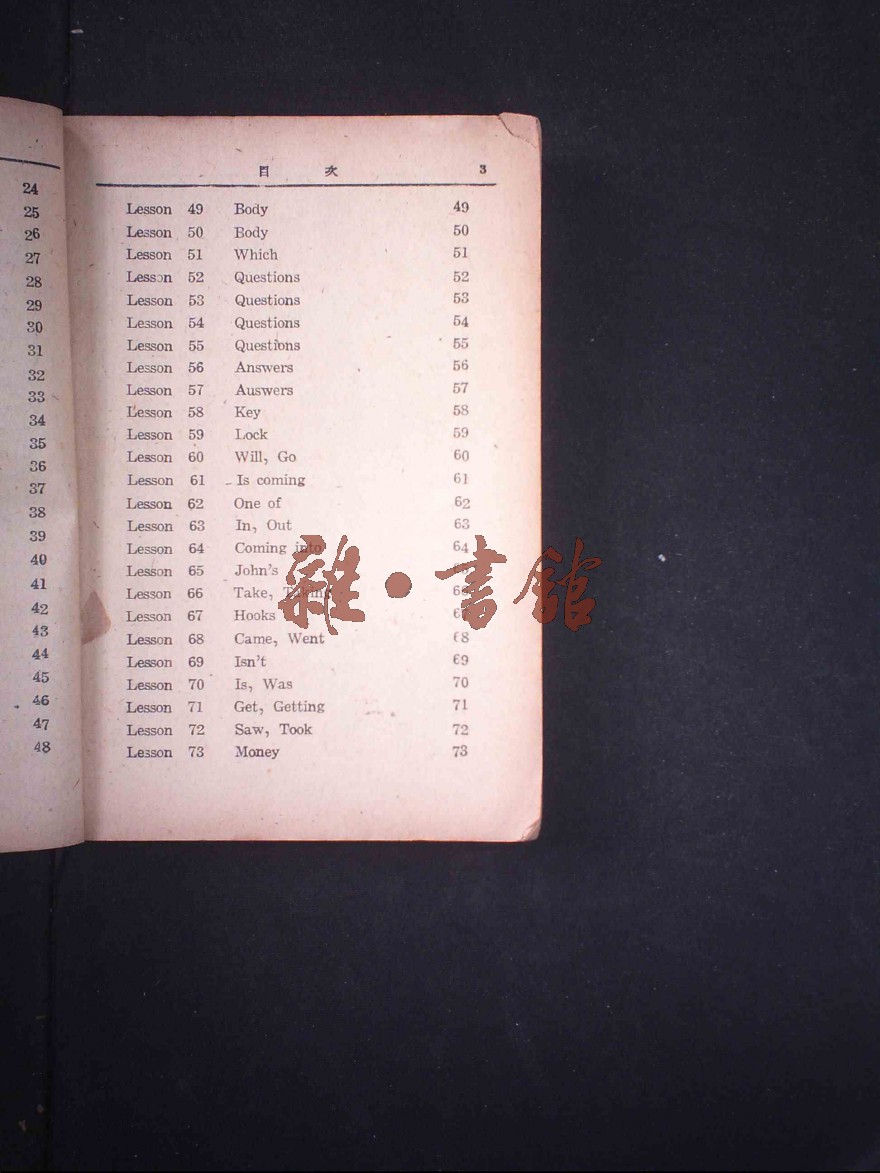 24
25
26
27
28
29
30
31
32
33
34
35
36
37
38
39
40
41
42
43
44
45
46
47
48
目 次 3
Lesson 49 Body 49
Lesson 50 Body 50
Lesson 51 Which 51
Lesson 52 Questions 52
Lesson 53 Questions 53
Lesson 54 Questions 54
Lesson 55 Questions 55
Lesson 56 Answers 56
Lesson 57 Auswers 57
Lesson 58 Key 58
Lesson 59 Lock 59
Lesson 60 Will, Go 60
Lesson 61 Is coming 61
Lesson 62 One of 62
Lesson 63 In, Out 63
Lesson 64 Coming into 64
Lesson 65 John's
Lesson 66 Take, Taking
Lesson 67 Hooks
Lesson 68 Came, Went 68
Lesson 69 Isn't 69
Lesson 70 Is, Was 70
Lesson 71 Get, Getting 71
Lesson 72 Saw, Took 72
Lesson 73 Money 73
雜·書館